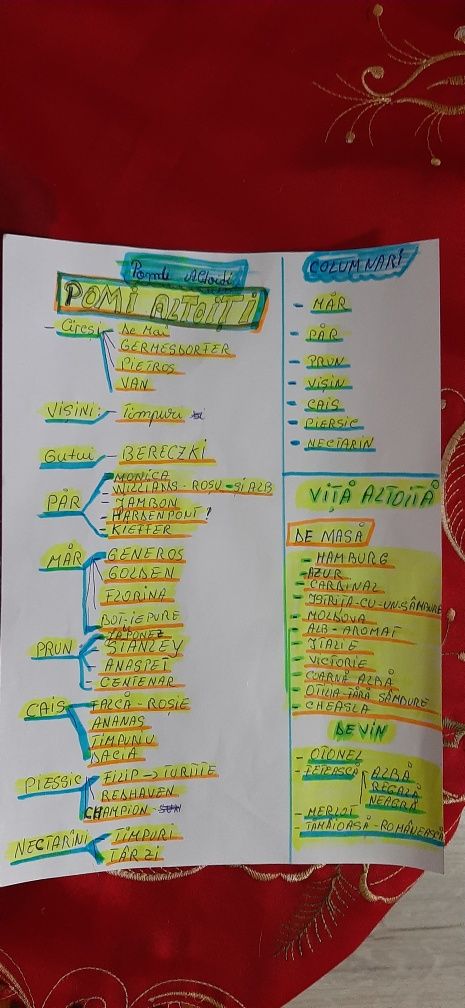 Pomi Altoiti
POMI ALTOIȚI
- Cireși - De Mai
GERMESDORFER
PIETROS
VAN
Vișini: - Timpuri
Gutui - BERECZKI
PĂR - MONICA
- WILLIAMS - ROȘU - ȘI ALB
- JAMBON
- HARDENPONT!
- KIEFFER
MĂR - GENEROS
GOLDEN
FLORINA
BOT-IEPURE
PRUN - JAPONEZ
- STANLEY
- ANASPET
- CENTENAR
CAIS - FALCĂ - ROȘIE
ANANAS
TIMPURIU
DACIA
PIESSIC - FILIP -> TURTITE
- REDHAVEN
CHAMPION
NECTARINI - TIMPURI
TÂRZI
COLUMNARI
- MĂR
- PĂR
- PRUN
- VIȘIN
- CAIS
- PIERSIC
- NECTARIN
VIȚĂ ALTOITĂ
DE MASĂ
- HAMBURG
- AZUR
- CARDINAL
- CU-UN SÂMBURE
- MOLDOVA
- ALB - AROMAT
- VICTORIE
- COARNĂ ALBĂ
- OTILIA FĂRĂ SÂMBURE
- CHEASLA
DE VIN
- OTONEL
- FETEASCĂ ALBĂ
REGALĂ
NEAGRĂ
- MERLOT
- TĂMÂIOASĂ - ROMÂNEASCĂ